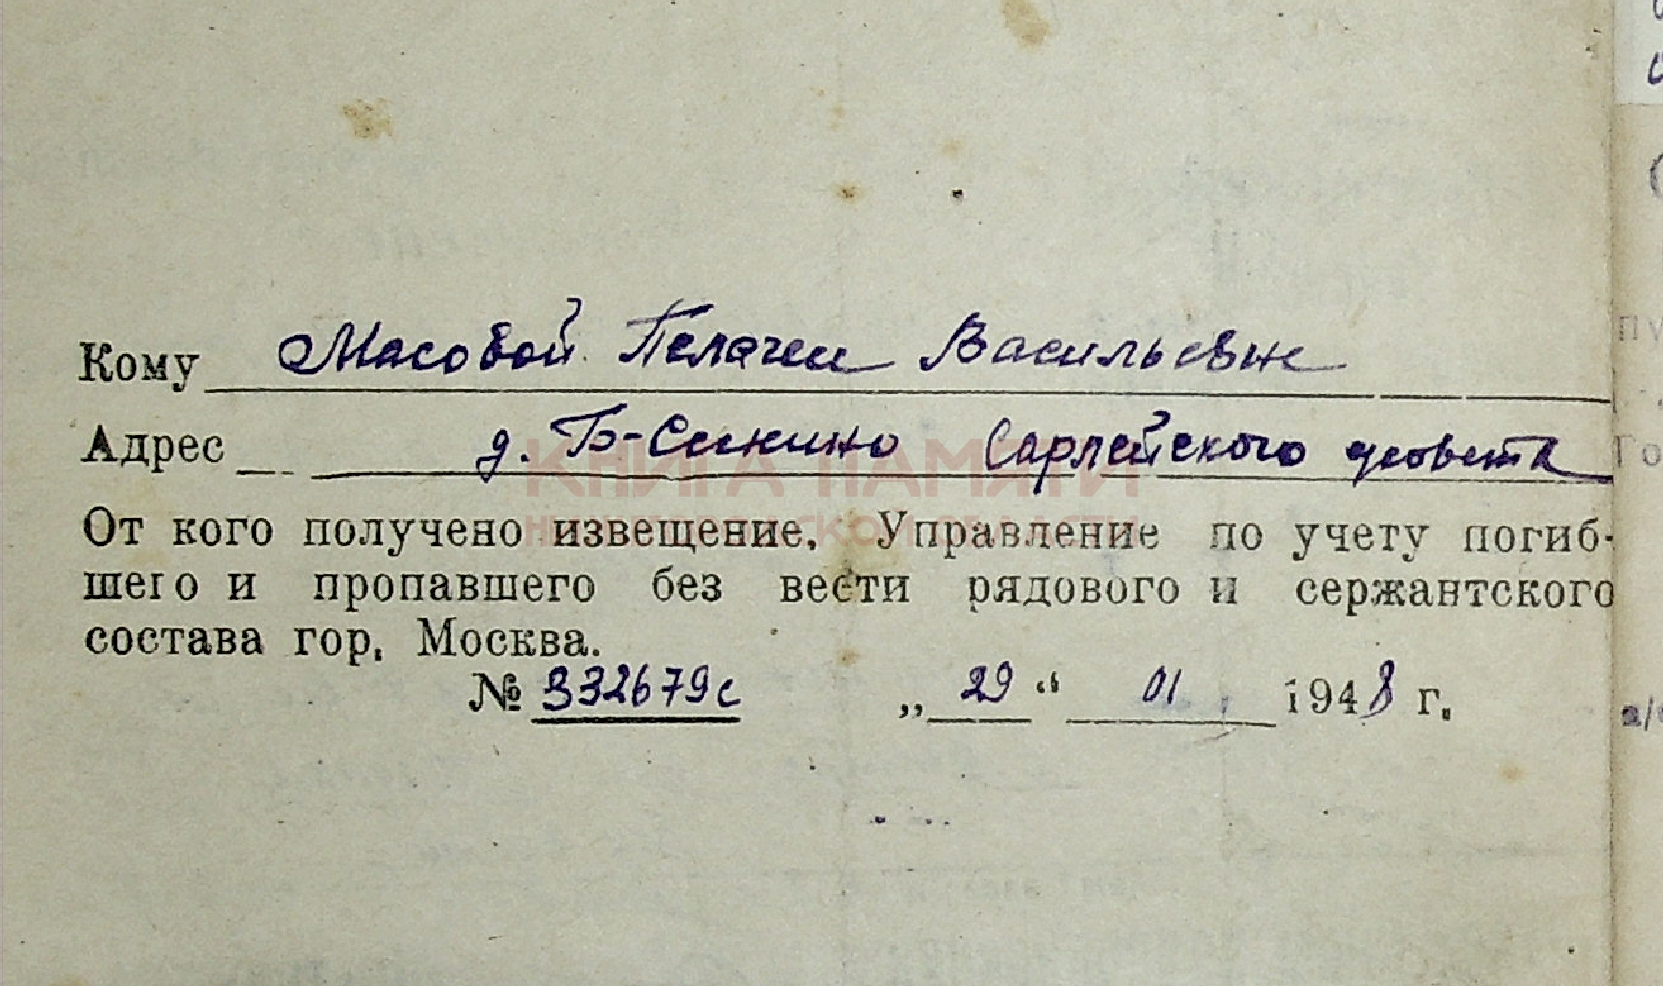 Кому Масовой Пелагеи Васильевне
Адрес д. Б-Сикино Сарлейского усовета
КНИГА ПАМЯТИ
НИЖЕГОРОДСКОЙ ОБЛАСТИ
От кого получено извещение, Управление по учету погиб-
шего и пропавшего без вести рядового и сержантского
состава гор. Москва.
№ 332679с „29“ 01 1948 г.